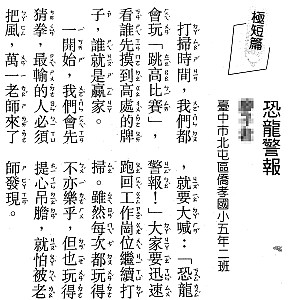 恐龍警報
臺中市北屯區僑孝國小五年二班
極短篇
打掃時間，我們都
會玩「跳高比賽」，
看誰先摸到高處的牌
子，誰就是贏家。
一開始，我們會先
猜拳，最輸的人必須
把風，萬一老師來了
，就要大喊：「恐龍
警報！」大家要迅速
跑回工作崗位繼續打
掃。雖然每次都玩得
不亦樂乎，但也玩得
提心吊膽，就怕被老
師發現。